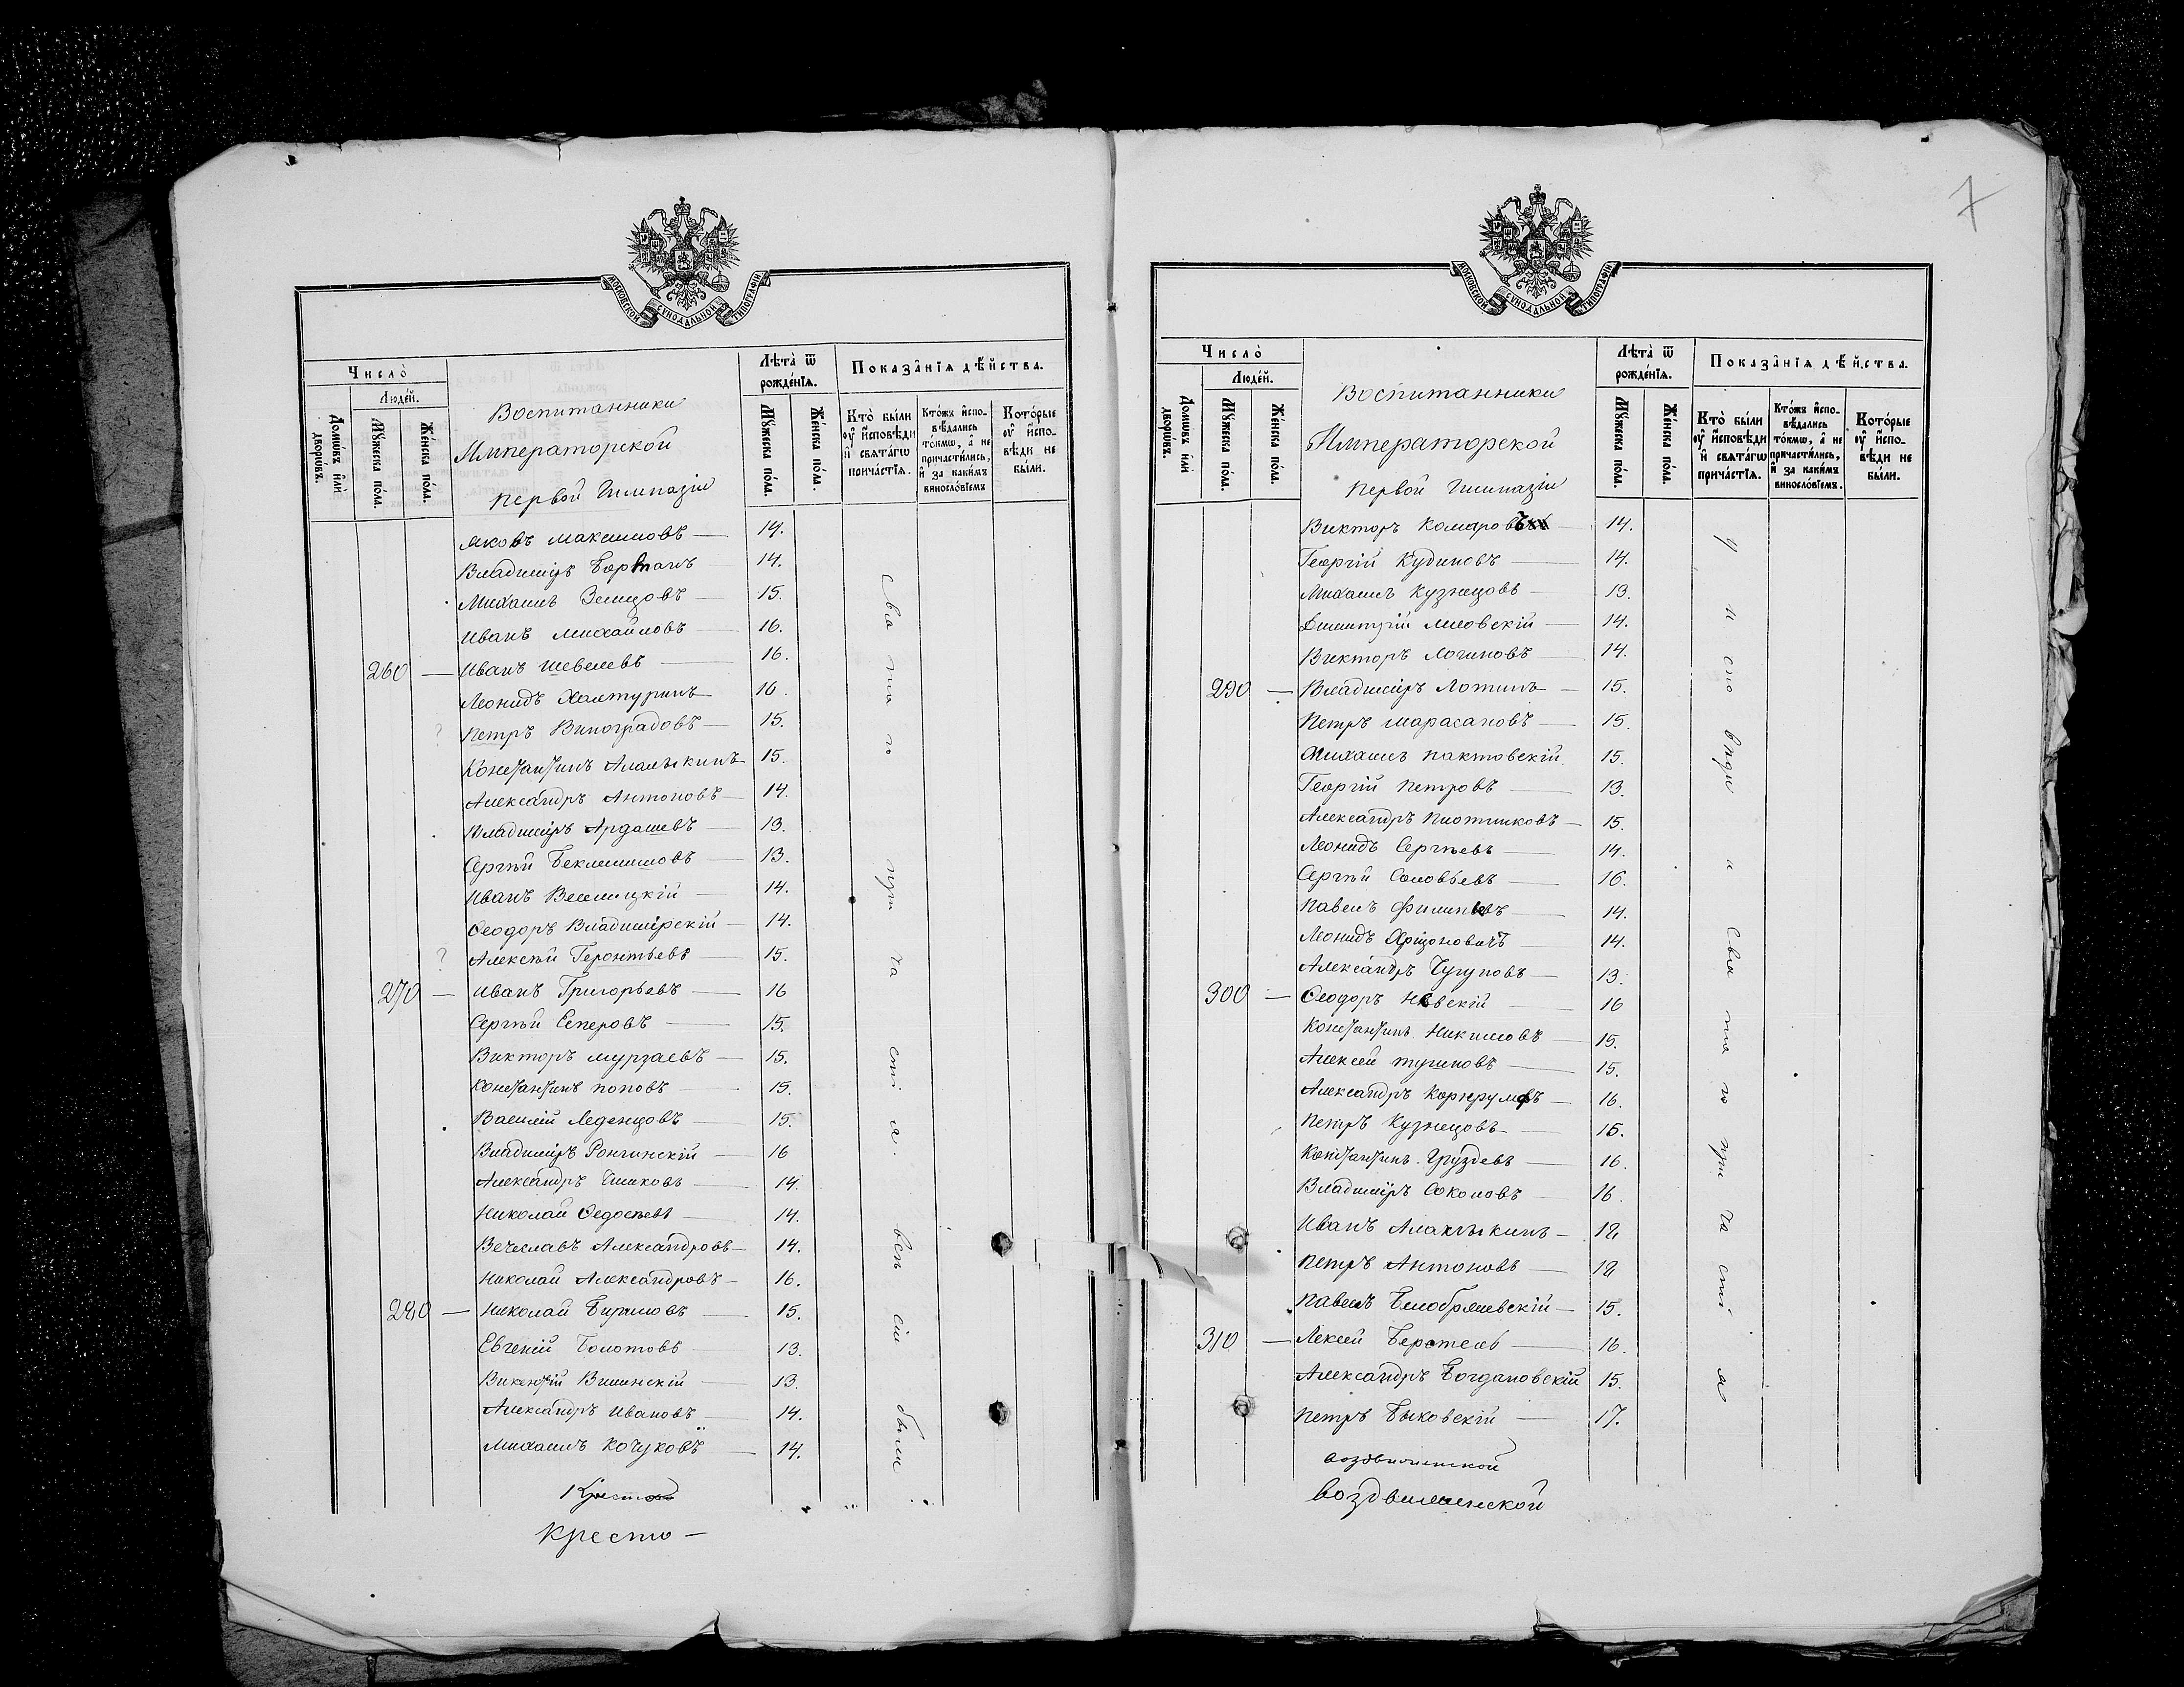 7
МОСКОВСКОЙ СѴНОДАЛЬНОЙ ТИПОГРАФІИ
Число̀
Людéй.
Домѡвъ и҆лѝ дворѡвъ.
Мꙋ́жеска по́ла.
Же́нска по́ла.
Воспитанники
Императорской
Первой Гимназіи
Лѣта̀ ѿ рожде́нїѧ.
Мꙋ́жеска по́ла.
Же́нска по́ла.
Показа̂нїѧ дѣ́йства.
Кто̀ бы́ли
ᲂу҆ и҆сповѣди
и҆ свѧта́гѡ
прича́стїѧ.
Кто́жъ и҆спо-
вѣ́дались
то́кмѡ, а҆ не
причасти́лись,
и҆ за каки́мъ
винослó́вїемъ
Кото́рые
ᲂу҆ и҆спо-
вѣди не
бы́ли.
Яковъ Максимовъ — 14.
Владиміръ Бортанъ 14.
Михаилъ Земцовъ — 15.
Иванъ Михайловъ — 16.
260 — Иванъ Шевелевъ — 16.
Леонидъ Халтуринъ 16.
Петръ Виноградовъ — 15.
Константинъ Алалыкинъ 15.
Александръ Антоновъ — 14.
Владиміръ Ардашевъ — 13.
Сергѣй Беклемишовъ — 13.
Иванъ Веселицкій — 14.
Ѳеодоръ Владимірскій — 14.
? Алексѣй Геронтьевъ — 15.
270 — Иванъ Григорьевъ — 16
Сергѣй Сеперовъ — 15.
Викторъ Мурзаевъ — 15.
Константинъ Поповъ — 15.
Василій Леденцовъ — 15.
Владиміръ Рончинскій — 16
Александръ Чишковъ — 14.
Николай Ѳедосѣевъ — 14.
Вечеславъ Александровъ — 14.
Николай Александровъ — 16.
280 — Николай Бириловъ — 15.
Евгеній Болотовъ — 13.
Викентій Вишинскій — 13.
Александръ Ивановъ — 14.
Михаилъ Кочуковъ — 14.
свя та го при ча сті я. всѣ сіи были
Кресто
Кресто —
МОСКОВСКОЙ СѴНОДАЛЬНОЙ ТИПОГРАФІИ
Число̀
Людéй.
Домѡвъ и҆лѝ дворѡвъ.
Мꙋ́жеска по́ла.
Же́нска по́ла.
Воспитанники
Императорской
Первой Гимназіи
Лѣта̀ ѿ рожде́нїѧ.
Мꙋ́жеска по́ла.
Же́нска по́ла.
Показа̂нїѧ дѣ́йства.
Кто̀ бы́ли
ᲂу҆ и҆сповѣди
и҆ свѧта́гѡ
прича́стїѧ.
Кто́жъ и҆спо-
вѣ́дались
то́кмѡ, а҆ не
причасти́лись,
и҆ за каки́мъ
винослó́вїемъ.
Кото́рые
ᲂу҆ и҆спо-
вѣди не
бы́ли.
Викторъ Комаровъ — 14.
Георгій Кудиновъ — 14.
Михаилъ Кузнецовъ — 13.
Димитрій Лиловскій — 14.
Викторъ Логиновъ — 14.
290 — Владиміръ Лотинъ — 15.
Петръ Марасановъ — 15.
Михаилъ Пактовскій 15.
Георгій Петровъ — 13.
Александръ Плотниковъ — 15.
Леонидъ Сергѣевъ — 14.
Сергѣй Соловьевъ — 16.
Павелъ Филиповъ — 14.
Леонидъ Хрщоновичъ 14.
Александръ Чугуновъ — 13.
300 — Ѳеодоръ Невскій — 16
Константинъ Никишовъ — 15.
Алексей Тугиновъ — 15.
Александръ Корнрумфъ — 16.
Петръ Кузнецовъ — 15.
Константинъ Груздевъ — 16.
Владиміръ Соколовъ 16.
Иванъ Алалыкинъ — 12,
Петръ Антоновъ — 12
Павелъ Белобржевскій — 15.
310 — Алексей Берстель — 16.
Александръ Богдановскій 15.
Петръ Быковскій — 17.
у и спо вѣди и свя та го при ча сті я
воздвиженской
воздвиженской